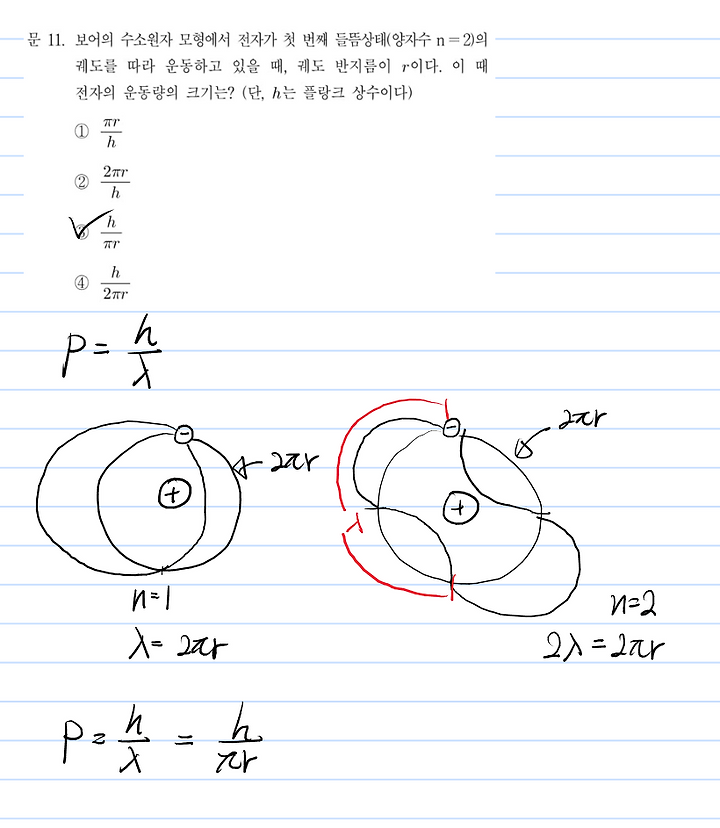 문 11. 보어의 수소원자 모형에서 전자가 첫 번째 들뜸상태(양자수 n=2)의
궤도를 따라 운동하고 있을 때, 궤도 반지름이 r이다. 이 때
전자의 운동량의 크기는? (단, h는 플랑크 상수이다)
① πr/h
② 2πr/h
③ h/πr
④ h/2πr
P = h/λ
⊖
2πr
⊕
n=1
λ = 2πr
⊖
2πr
⊕
λ
n=2
2λ = 2πr
P = h/λ = h/πr